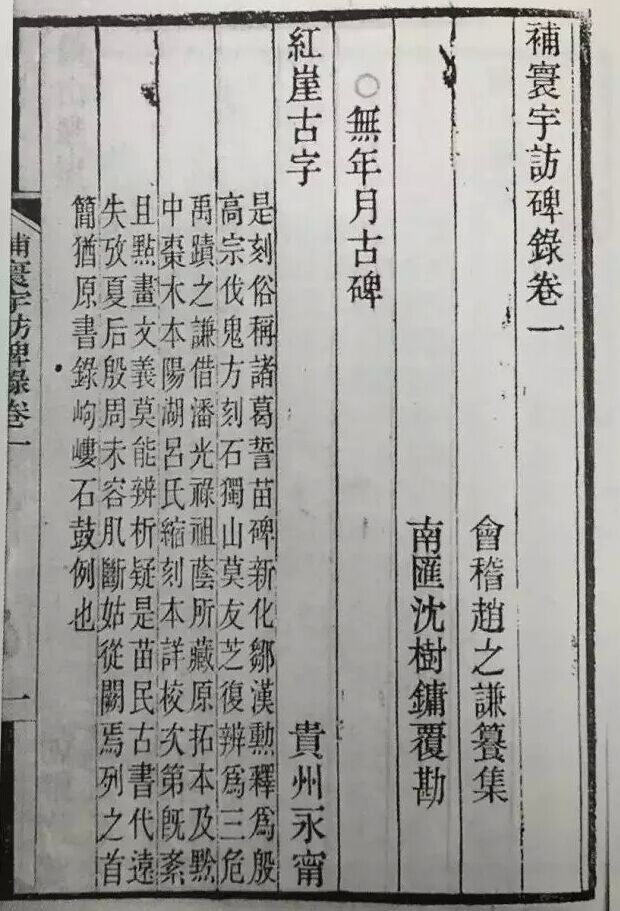 補寰宇訪碑錄卷一
會稽趙之謙纂集
南匯沈樹鏞覆勘
○無年月古碑
紅崖古字 貴州永甯
是刻俗稱諸葛誓苗碑新化鄒漢勳釋為殷
高宗伐鬼方刻石獨山莫友芝復辨為三危
禹蹟之謙借潘光祿祖蔭所藏原拓本及黔
中棗木本陽湖呂氏縮刻本詳校次第旣紊
且點畫文義莫能辨析疑是苗民古書代遠
失攷夏后殷周未容肊斷姑從闕焉列之首
簡猶原書錄岣嶁石鼓例也
補寰宇訪碑錄卷一
一